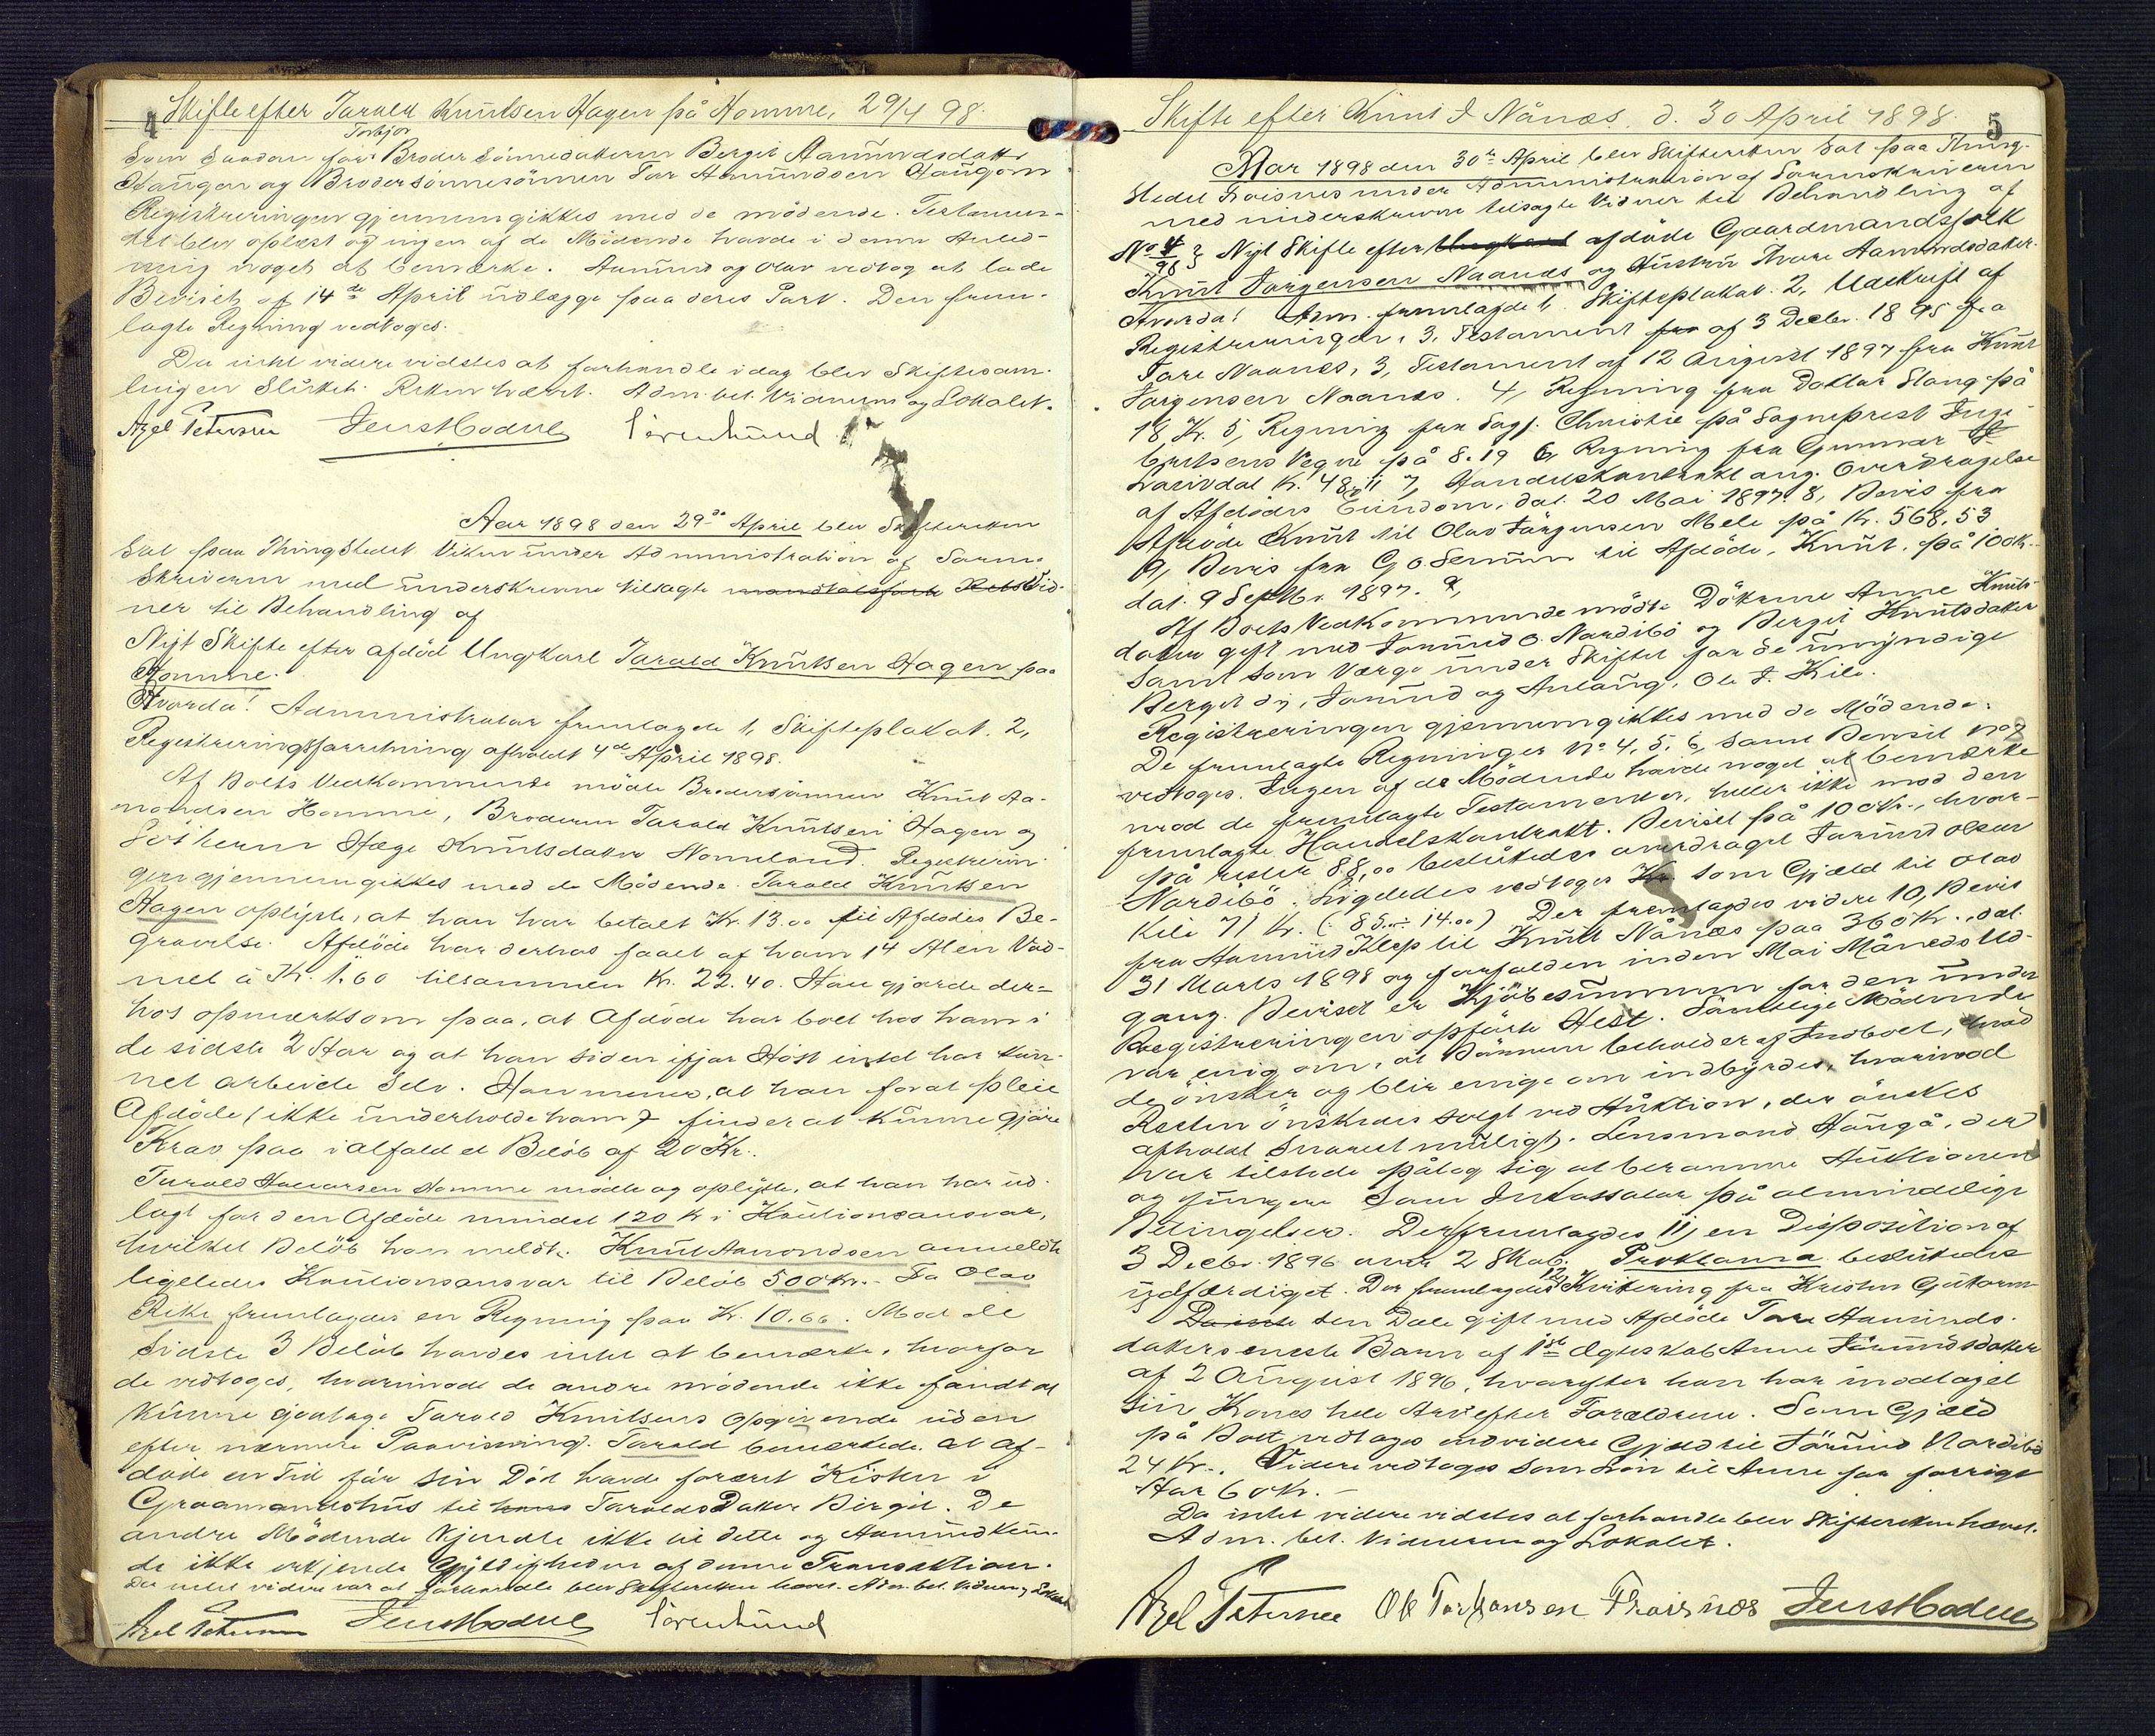 4 Skifte efter Tarald Knutsen Hagen på Homme, 29/4 98.
Torbjor
Som saadan for Broder Sønnedatteren Bergit Aamundsdatter
Haugen og Brodersønnesønnen Tor Aamundsen Haugen
Registreringen gjennemgikkes med de mødende. Testamen-
tet blev oplæst og ingen af de Mødende havde i denne Anled-
ning noget at bemærke. Aamund og Olav vedtog at lade
Beviset af 14de April udlægge paa deres Part. Den frem-
lagte Regning vedtoges.
Da intet videre vidstes at forhandle idag blev Skiftesam-
lingen sluttet. Retten hævet. Adm. bet. Vidnerne og Lokalet.
Axel Petersen Jens Hodne
Aar 1898 den 29de April blev Skifteretten
sat paa Thingstedet Viken under Administration af Soren-
skriveren med underskrevne tilsagte mandtalsførte Rets Vid-
ner til Behandling af
Nyt Skifte efter afdød Ungkarl Tarald Knutsen Hagen paa
Homme.
Hvorda! Administrator fremlagde 1, Skifteplakat. 2,
Registreringsforretning afholdt 4de April 1898.
Af Boets Vedkommende mødte Brodersønnen Knut Aa-
mondsen Homme, Broderen Tarald Knutsen Hagen og
Søsteren Hæge Knutsdatter Homeland. Registrerin-
gen gjennemgikkes med de Mødende. Tarald Knutsen
Hagen oplyste, at han har betalt Kr. 13.00 til Afdødes Be-
gravelse. Afdøde har derhos faaet af ham 14 Alen Vad-
mel à Kr. 1.60 tilsammen Kr. 22.40. Han gjorde der-
hos opmærksom paa, at Afdøde har boet hos ham i
de sidste 2 Aar og at han siden ifjor Høst intet har kun-
net arbeide selv. Han mener, at han for at pleie
Afdøde (ikke underholde ham) finder at kunne gjøre
Krav paa ialfald et Beløb af 20 Kr.
Tarald Halvorsen Homme mødte og oplyste, at han har ud-
lagt for den Afdøde mindst 120 Kr i Kautionsansvar,
hvilket Beløb han meldte. Knut Aamondsen anmeldte
ligeledes Kautionsansvar til Beløb 500 Kr. Fra Olav
Rike fremlagdes en Regning paa Kr. 10.66. Mod de
sidste 3 Beløb havdes intet at bemærke, hvorfor
de vedtoges, hvorimod de andre mødende ikke fandt at
kunne godtage Tarald Knutsens Opgivende uden
efter nærmere Paavisning. Tarald bemærkede at Af-
døde en Tid før sin Død havde foræret Kisten i
Graamandshus til hans Taralds Datter Birgit. De
andre Mødende kjendte ikke til dette og Aamund kun-
de ikke erkjende Gyldigheden af denne Transaktion.
Da intet videre var at forhandle blev Skifteretten hævet. Adm. bet. Vidnerne og Lokalet
Axel Petersen Jens Hodne
Skifte efter Knut J Nånæs. d. 30 April 1898. 5
Aar 1898 den 30te April blev Skifteretten sat paa Thing-
stedet Froisnes under Administration af Sorenskriveren
med underskrevne tilsagte Vidner til Behandling af
No 4/98 } Nyt Skifte efter Ungkarl afdøde Gaardmandsfolk
Knut Jørgensen Naanæs og Hustru Thore Aamundsdatter.
Hvorda! Adm. fremlagde 1, Skifteplakat. 2, Udskrift af
Registreringen, 3, Testament fra af 3 Decbr. 1895 fra
Tore Naanes, 3, Testament af 12 August 1897 fra Knut
Jørgensen Naanes. 4, Regning fra Doktor Stang på
18 Kr. 5, Regning fra Sagf. Christie på Sogneprest Inge-
brethsens Vegne på 8.19 6, Regning fra Gunnar
Kr. 48, 7, Handelskontrakt ang. Overdragelse
af Afdødes Eiendom, dat. 20 Mai 1897. 8, Bevis fra
Afdøde Knut til Olav Jørgensen Mele på Kr. 568,53
9, Bevis fra G O. til Afdøde, Knut, på 100 Kr.
dat. 9 Septbr. 1897.
Af Boets Vedkommende mødte Døtrene Anne Knuts-
datter gift med Jorund O. Nordibø og Bergit Knutsdatter
samt som Værge under Skiftet for de umyndige
Bergit dy, Jorund og Anlaug, Ole J. Kile.
Registreringen gjennemgikkes med de Mødende.
De fremlagte Regninger No. 4, 5, 6, samt Bevist No 8
vedtoges. Ingen af de Mødende havde noget at bemærke
mod de fremlagte Testamenter, heller ikke mod den
fremlagte Handelskontrakt. Beviset på 100 Kr., hvor-
på rester 88,00 besluttedes overdraget Jorund Olsen
Nordibø. Ligeledes vedtoges Kr. som Gjæld til Olav
Kile 71 Kr. (: 85 ÷ 14.00) Der fremlagdes videre 10, Bevis
fra Aamund Klep til Knut Nånæs paa 360 Kr., dat.
31 Marts 1898 og forfalden inden Mai Måneds Ud-
gang. Beviset er Kjøbesummen for den under
Registreringen opførte Hest. Samtlige Mødende
var enig om, at Børnene beholder af Indboet, hvad
de ønsker og blir enige om indbyrdes, hvorimod
Resten ønskedes solgt ved Auktion, der ønskes
afholdt snarest muligt. Lensmand Haugå, der
var tilstede påtog sig at beramme Auktionen
og fungere som Inkassator på almindelige
Betingelser. Der fremlagdes 11, en Disposition af
3 Decbr. 1896 over 2 Skab. Proklama besluttedes
udfærdiget. Der fremlagdes 12, Kvittering fra Kristen Gutorm
Da inte sen Dale gift med Afdøde Tore Aamunds-
datters eneste Barn af 1ste Ægteskab Anne Jorundsdatter
af 2 August 1896, hvorefter han har modtaget
sin Kones hele Arv efter Forældrene. Som Gjæld
på Boet vedtoges endvidere Gjæld til Jørund Nordibø
24 Kr.. Videre vedtoges som Løn til Anne for forrige
Aar 60 Kr. -
Da intet videre vidstes at forhandle blev Skifteretten hævet.
Adm. bet. Vidnerne og Lokalet.
Axel Petersen Ole Torjansen Froisnæs Jens Hodne